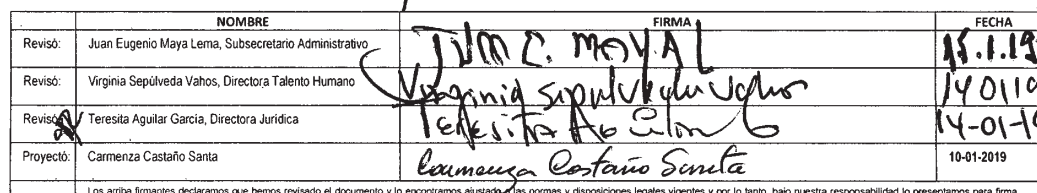 NOMBRE FIRMA FECHA
Revisó: Juan Eugenio Maya Lema, Subsecretario Administrativo JUM C. MAYA L 15.1.19
Revisó: Virginia Sepúlveda Vahos, Directora Talento Humano Virginia Sepulveda Vahos 140119
Revisó: Teresita Aguilar García, Directora Jurídica Teresita 14-01-19
Proyectó: Carmenza Castaño Santa Carmenza Castaño Santa 10-01-2019
Los arriba firmantes declaramos que hemos revisado el documento y lo encontramos ajustado a las normas y disposiciones legales vigentes y por lo tanto, bajo nuestra responsabilidad lo presentamos para firma.